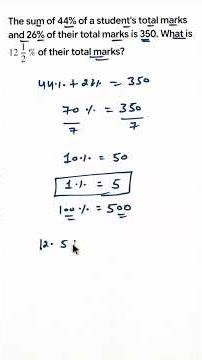 The sum of 44% of a student's total marks
and 26% of their total marks is 350. What is
12 1/2 % of their total marks?
44% + 26% = 350
70 % = 350
7 7
10% = 50
1% = 5
100% = 500
12. 5